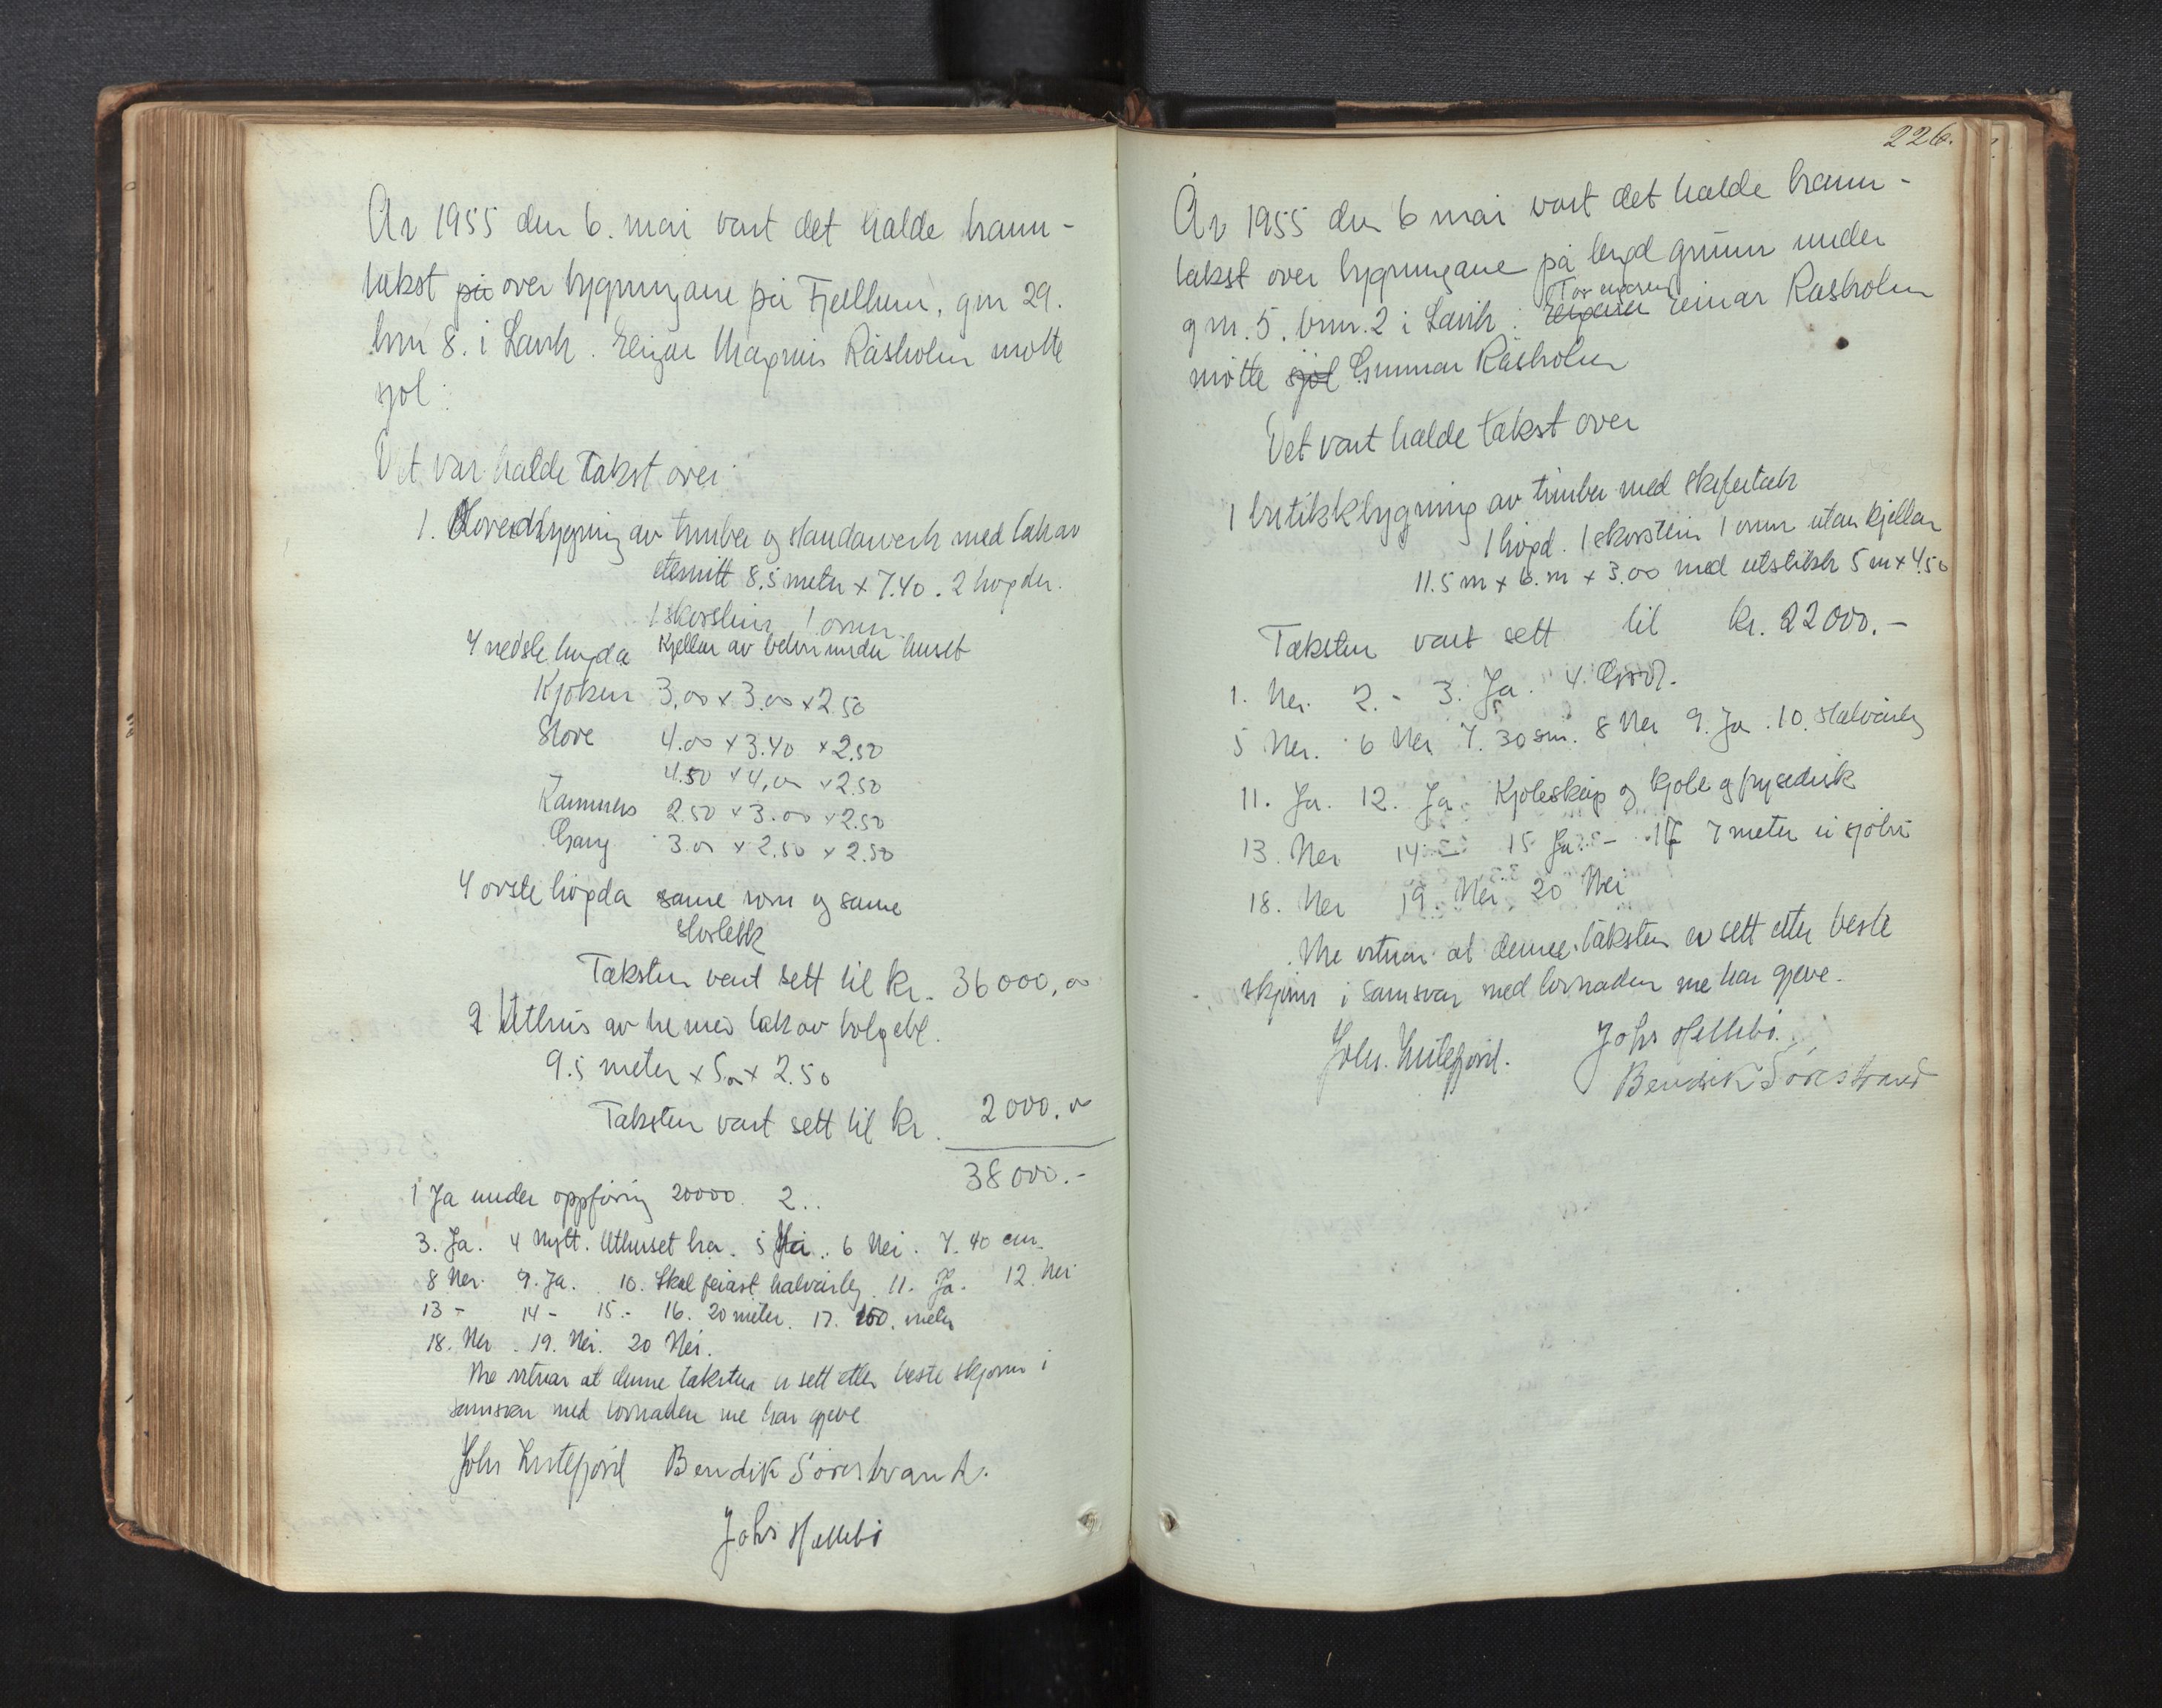 År 1955 den 6. mai vart det halde brann-
takst på over bygningane på Fjellheim, gnr 29.
bnr 8. i Lavik. Eigar Magnus Råsholm møtte
sjøl.
Det var halde takst over:
1. Hovedbygning av timber og standarverk med tak av
eternitt 8.5 meter x 7.40. 2 høgder.
1 skorstein 1 omn.
Y nedste høgda Kjellar av betong under huset
Kjøken 3.00 x 3.00 x 2.50
Stove 4.00 x 3.40 x 2.50
4.50 x 4,00 x 2.50
Kammers 2.50 x 3.00 x 2.50
Gang 3.00 x 2.50 x 2.50
Y øvste høgda same rom og same
storleik
Taksten vart sett til kr. 36000,00
2 Uthus av tre med tak av bølgebl.
9.5 meter x 5.00 x 2.50
Taksten vart sett til kr. 2000.00
38000.-
1 Ja under oppføring 20000. 2..
3. Ja. 4 Nytt. Uthuset bra. 5 6 Nei. 7. 40 cm.
8 Nei. 9. Ja. 10. Skal feiast halvårleg. 11. Ja. 12. Nei
13 - 14 - 15.- 16. 20 meter. 17. 100. meter
18. Nei. 19. Nei. 20 Nei.
Me vitnar at denne taksten er sett etter beste skjønn i
samsvar med lovnaden me har gjeve
Johs Bendik Sørestrand.
Johs Hellebø
226.
År 1955 den 6 mai vart det halde brann-
takst over bygningane på bygd grunn under
gnr. 5. bnr. 2 i Lavik. Einar Råsholm
møtte sjøl Gunnar Råsholm
Det vart halde takst over
1 butikkbygning av timber med skifertak
1 høgd. 1 skorstein 1 omn utan kjellar
11.5 m x 6. m x 3.00 med utstikk 5 m x 4.50
Taksten vart sett til kr. 22000.-
1. Nei. 2. - 3. Ja. 4. God.
5 Nei. 6 Nei 7. 30 sm. 8 Nei 9. Ja. 10. Halvårleg
11. Ja. 12. Ja. Kjøleskap og kjøle og frysedisk
13. Nei 14 - 15 Ja. - 17 7 meter
18. Nei 19. Nei 20 Nei
Me vitnar at denne taksten er sett etter beste
skjønn i samsvar med lovnaden me har gjeve.
Johs. Johs Hellebø.
Bendik Sørestrand